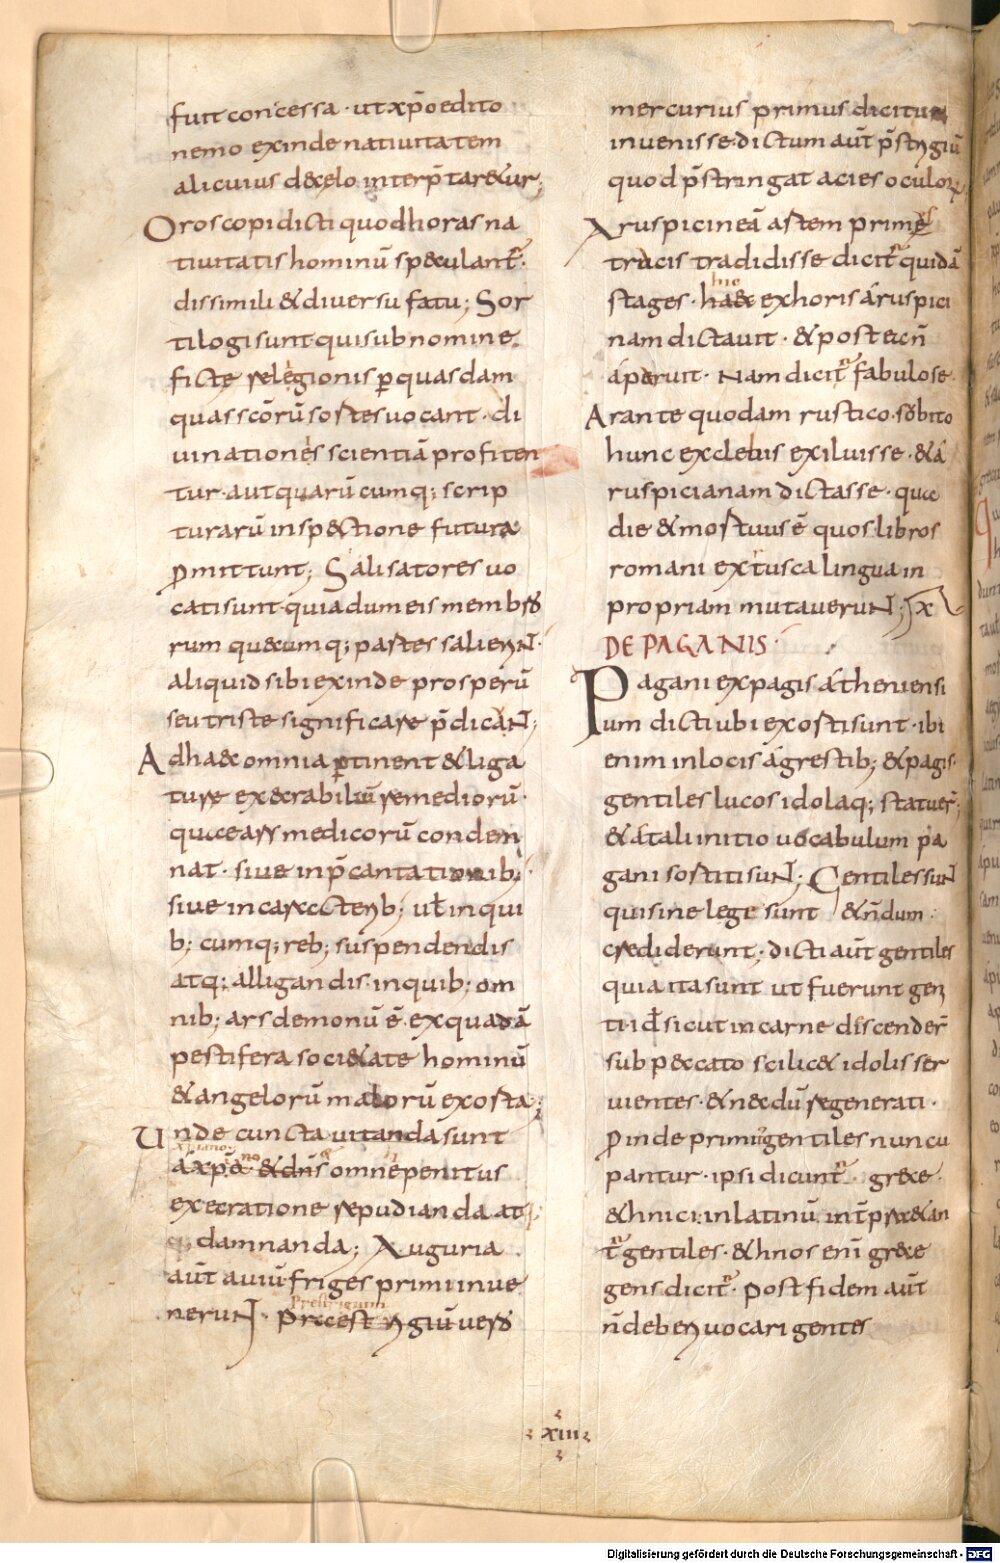 fuit concessa · ut xp̄o edito
nemo exinde natiuitatem
alicuius de caelo interp̄taretur;
Oroscopi dicti quod horas na
tiuitatis hominū speculant̄ ·
dissimili & diuerso fatu; Sor
tilogi sunt qui sub nomine
ficte relegionis ꝑ quasdam
quas scōrū sortes uocant · di
uinationes scientiā profiten
tur · aut quarūcumq; scrip
turarū inspectione futura
ꝓmittunt; Salisatores uo
cati sunt quia dum eis membro
rum quecumq; partes salierN̄ ·
aliquid sibi exinde prosperū
seu triste significare p̄dicaN̄;
Ad haec omnia ꝑtinent & liga
ture execrabiliū remediorū ·
que ars medicorū condem
nat · siue in p̄cantationib;
siue in caracterib; ut̄ in qui
b; cumq; reb; suspendendis
atq; alligandis · in quib; om
nib; ars demonū ē · ex quadā
pestifera societate hominū
& angelorū malorū exorta;
Unde cuncta uitanda sunt
a xp̄o · & omne penitus
execratione repudianda at
q; damnanda; Auguria
aūt auiū friges primi inue
neruN̄ · Praestrigiū uero
Prestrigium
mercurius primus dicitur
inuenisse · dictum aūt p̄strigiū
quod p̄stringat acies oculorꝝ
Aruspicineā artem prim
trucis tradidisse dicit̄ quidā
stages · hic ex horis aruspici
nam dictauit · & post ea n̄
aperuit · Nam dicit̄ fabulose
Arante quodam rustico · sobito
hunc ex clebis exiluisse · & a
ruspicianam dictasse · qua
die & mortuus ē quos libros
romani ex tusca lingua in
propriam mutaueruN̄; X
DE PAGANIS ·
Pagani ex pagis atheniensi
um dicti ubi exorti sunt · ibi
enim in locis agrestib; & pagis
gentiles lucos idolaq; statuer̄;
& a tali initio uocabulum pa
gani sortiti suN̄; Gentiles suN̄
qui sine lege sunt & n̄dum
crediderunt; dicti aūt gentiles
quia ita sunt ut fuerunt gen
ti · id̄ sicut in carne discender̄
sub peccato scilicet idolis ser
uientes · & necdū regenerati ·
Proinde primi gentiles nuncu
pantur · ipsi dicunt̄ · grece ·
ethnici · in latinū int̄praetan
t̄ gentiles · ethnos enī grece
gens dicit̄ · Post fidem aūt
n̄ deben uocari gentes
xiii
Digitalisierung gefördert durch die Deutsche Forschungsgemeinschaft - DFG